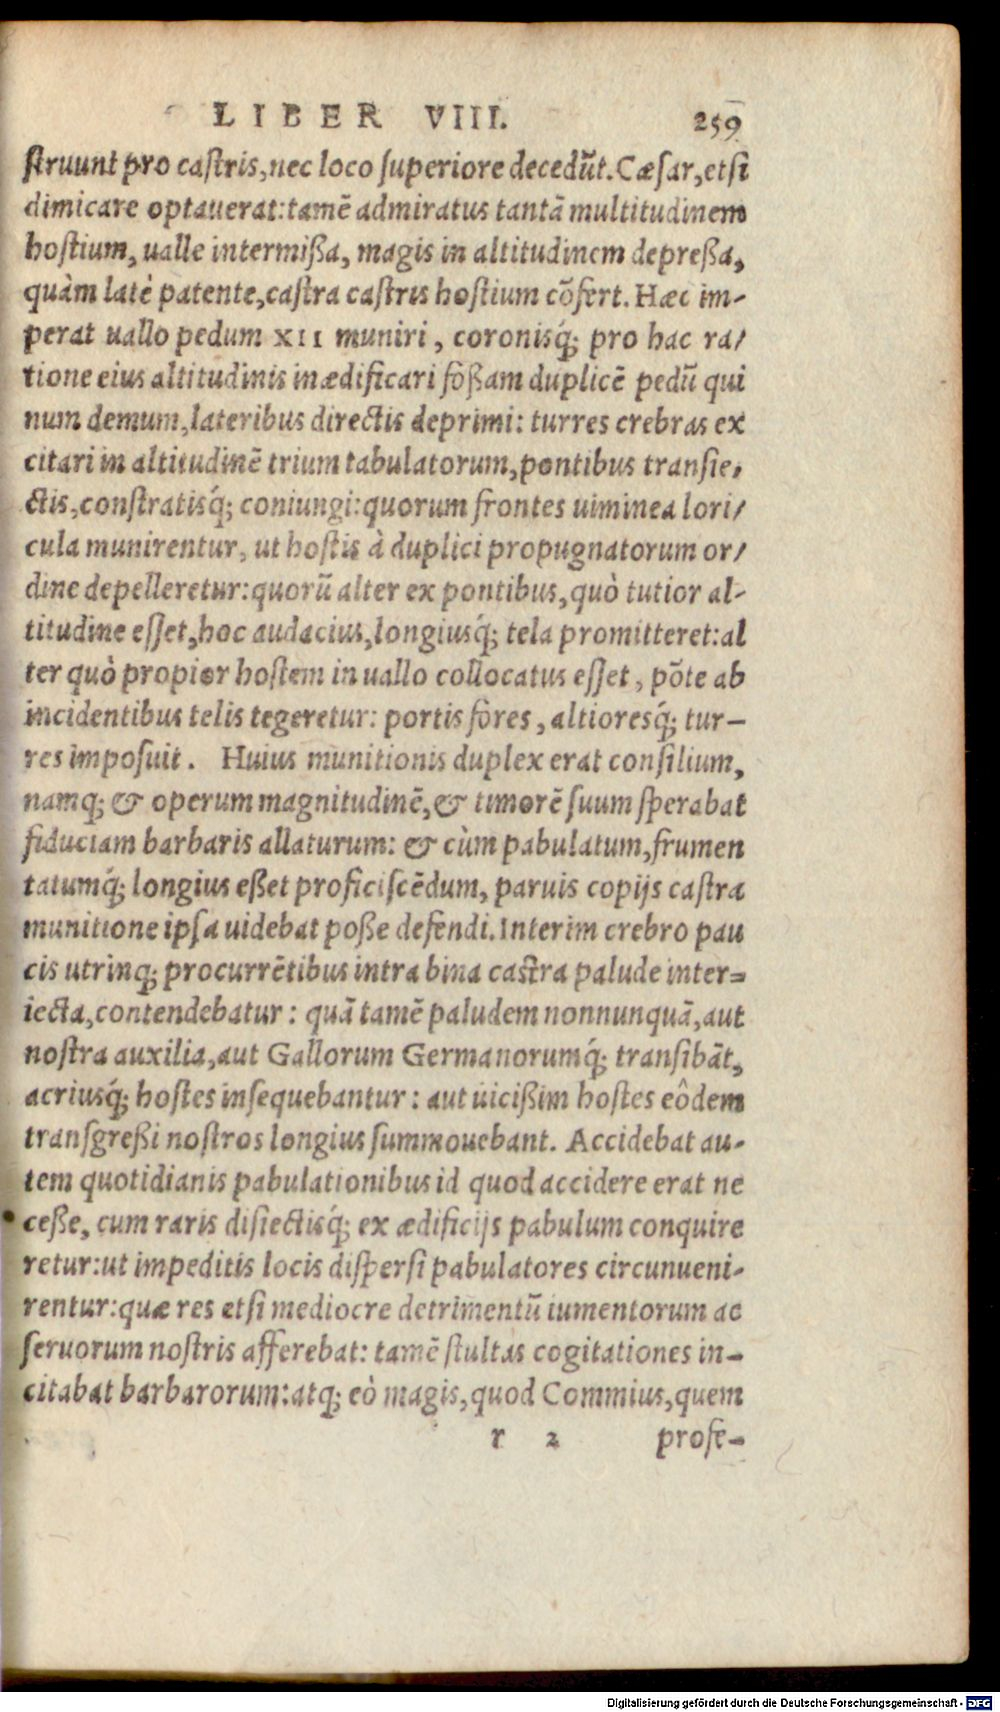 LIBER VIII. 259
struunt pro castris, nec loco superiore decedūt. Cæsar, etsi
dimicare optauerat: tamē admiratus tantā multitudinem
hostium, ualle intermißa, magis in altitudinem depreßa,
quàm latè patente, castra castris hostium cōfert. Hæc im-
perat uallo pedum XII muniri, coronisq́; pro hac ra/
tione eius altitudinis inædificari foßam duplicē pedū qui
num demum, lateribus directis deprimi: turres crebras ex
citari in altitudinē trium tabulatorum, pontibus transie/
ctis, constratisq́; coniungi: quorum frontes uiminea lori/
cula munirentur, ut hostis à duplici propugnatorum or/
dine depelleretur: quorū alter ex pontibus, quò tutior al-
titudine esset, hoc audacius, longiusq́; tela promitteret: al
ter quò propior hostem in uallo collocatus esset, pōte ab
incidentibus telis tegeretur: portis fores, altioresq́; tur-
res imposuit. Huius munitionis duplex erat consilium,
namq; & operum magnitudinē, & timorē suum sperabat
fiduciam barbaris allaturum: & cùm pabulatum, frumen
tatumq́; longius eßet proficiscēdum, paruis copijs castra
munitione ipsa uidebat poße defendi. Interim crebro pau
cis utrinq; procurrētibus intra bina castra palude inter-
iecta, contendebatur: quā tamē paludem nonnunquā, aut
nostra auxilia, aut Gallorum Germanorumq́; transibāt,
acriusq́; hostes insequebantur: aut uicißim hostes eôdem
transgreßi nostros longius summouebant. Accidebat au-
tem quotidianis pabulationibus id quod accidere erat ne
ceße, cum raris disiectisq́; ex ædificijs pabulum conquire
retur: ut impeditis locis dispersi pabulatores circunueni-
rentur: quæ res etsi mediocre detrimentū iumentorum ac
seruorum nostris afferebat: tamē stultas cogitationes in-
citabat barbarorum: atq; eò magis, quod Commius, quem
r 2 profe-
Digitalisierung gefördert durch die Deutsche Forschungsgemeinschaft - DFG